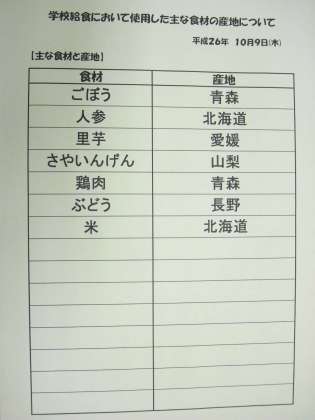 学校給食において使用した主な食材の産地について
平成26年 10月9日(木)
【主な食材と産地】
食材 産地
ごぼう 青森
人参 北海道
里芋 愛媛
さやいんげん 山梨
鶏肉 青森
ぶどう 長野
米 北海道